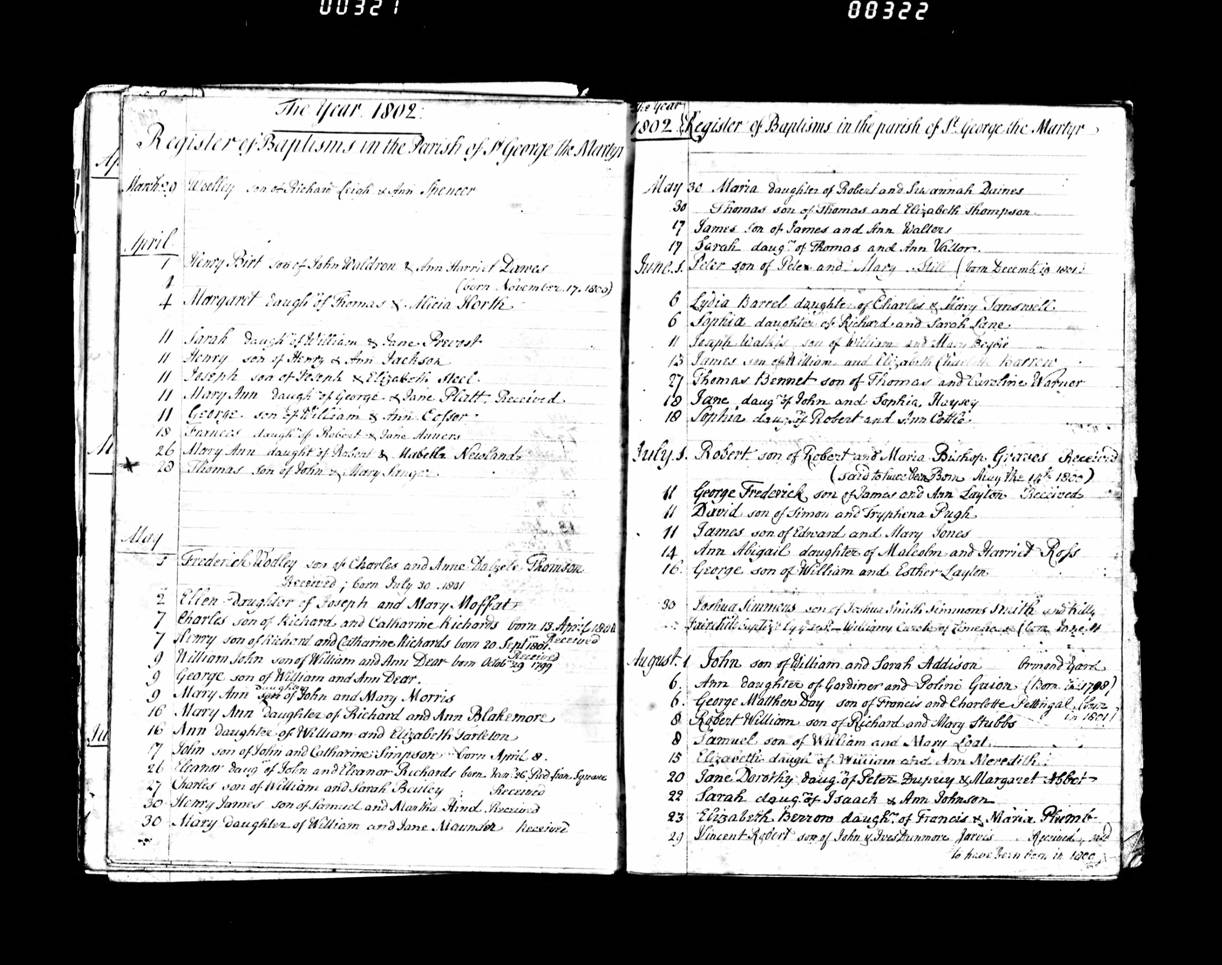 00321
00322
The Year 1802
Register of Baptisms in the Parish of St George the Martyr
March 29 Woolley son of Richard Leigh & Ann Spencer
April
1 Henry Birt son of John Waldron & Ann Harriet Dawes
(born Novembr 17. 1800)
4 Margaret daugh of Thomas & Alicia North
11 Sarah daugh of William & Jane Prevost
11 Henry son of Henry & Ann Jackson
11 Joseph son of Joseph & Elizabeth Steel
11 Mary Ann daugh of George & Jane Platt Received
11 George son of William & Ann
18 Frances daugh of Robert & Jane
26 Mary Ann daught of Robert & Isabella Newland
28 Thomas son of John & Mary
May
5 Frederick son of Charles and Anne Dalzele Thomson
Received; born July 30. 1801
2 Ellen daughter of Joseph and Mary Moffat
7 Charles son of Richard and Catharine Richards born 13 April
7 Henry son of Richard and Catharine Richards born 20 Sept 1801. Received
9 William John son of William and Ann Dear born Octobr 29 1799 Received
9 George son of William and Ann Dear.
9 Mary Ann daughter of John and Mary Morris
16 Mary Ann daughter of Richard and Ann Blakemore
16 Ann daughter of William and Elizabeth Tarleton
7 John son of John and Catharine Simpson born April 8.
26 Eleanor daug of John and Eleanor Richards born Jan 26 Red Lion Square
27 Charles son of William and Sarah Bailey Received
30 Henry James son of Samuel and Martha Hind Received
30 Mary daughter of William and Jane Received
The Year
1802 Register of Baptisms in the parish of St George the Martyr
May 30 Maria daughter of Robert and Susannah Daines
30 Thomas son of Thomas and Elizabeth Thompson
17 James son of James and Ann Walters
17 Sarah daugr of Thomas and Ann
June 1. Peter son of Peter and Mary Still (born Decemb. 19 1801)
6 Lydia Barrel daughter of Charles & Mary
6 Sophia daughter of Richard and Sarah Lane
11 Joseph son of William and Mary
13 James son of William and Elizabeth
27 Thomas Bennet son of Thomas and Caroline Warner
18 Jane daug of John and Sophia Haysey
18 Sophia daug of Robert and Ann Cottle
July 1. Robert son of Robert and Maria Bishop Graves Received
(said to have been Born May the 14th 1800)
11 George Frederick son of James and Ann Layton Received
11 David son of Simon and Tryphena Pugh
11 James son of Edward and Mary Jones
14 Ann Abigail daughter of Malcolm and Harriet Ross
16 George son of William and Esther Layton
30 Joshua Simmons son of Joshua Smith Simmons Smith and
(born June 11
August 1 John son of William and Sarah Addison Ormond Yard
6. Ann daughter of Gardiner and Guion (Born in 1798)
6. George Matthew Day son of Francis and Charlotte Pettingal (born in 1801)
8 Robert William son of Richard and Mary Stubbs
8 Samuel son of William and Mary
15 Elizabeth daugh of William and Ann Meredith
20 Jane Dorothy daug of Peter Dupuy & Margaret Abbet
22 Sarah daug of Isaack & Ann Johnson
23 Elizabeth Berrow daugh of Francis & Maria
29 Vincent Robert son of John & Jarvis Received, said
to have been born in 1800